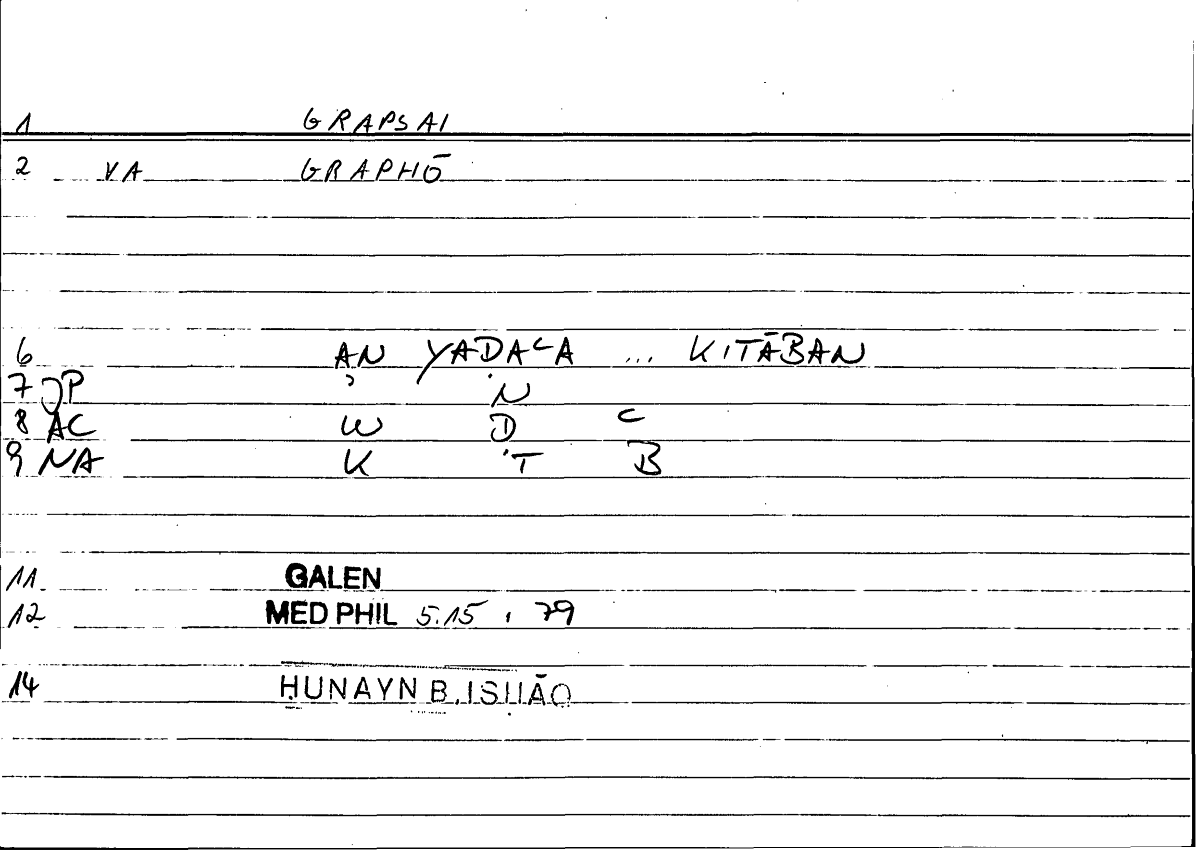 1 GRAPSAI
2 VA GRAPHŌ
6 AN YAḌAʿA ... KITĀBAN
7 JP ʾ N
8 AC W Ḍ ʿ
9 NA K T B
11 GALEN
12 MED PHIL 5.15 , 79
14 ḤUNAYN B. ISḤĀQ